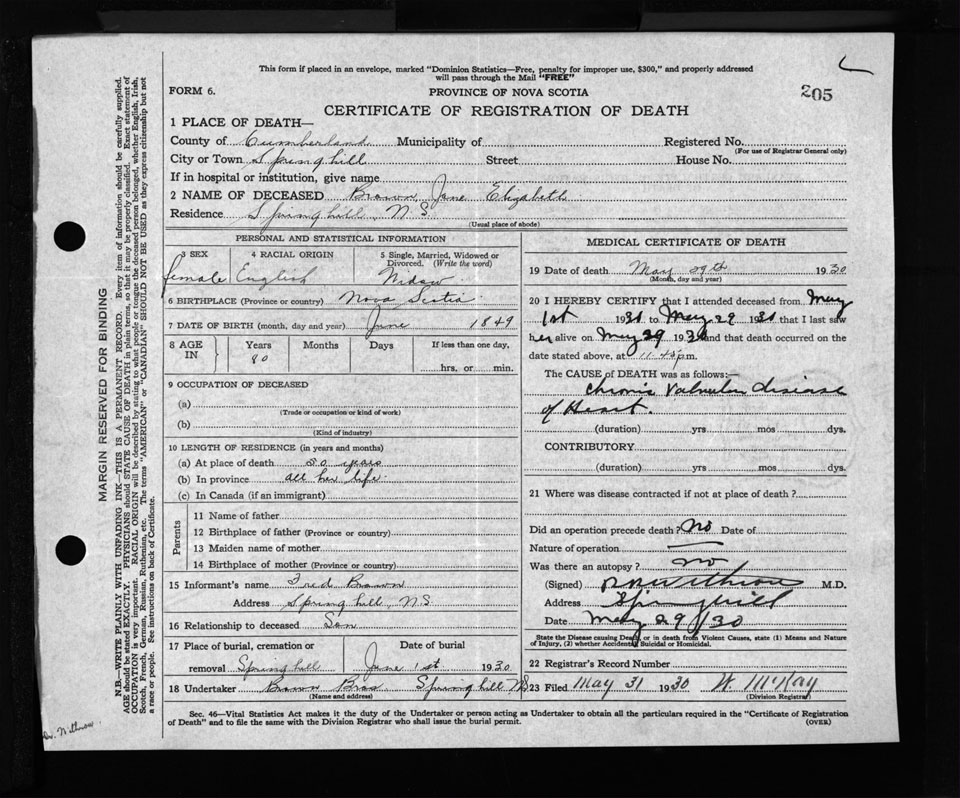 This form if placed in an envelope, marked "Dominion Statistics—Free, penalty for improper use, $300," and properly addressed
will pass through the Mail "FREE"
FORM 6.
PROVINCE OF NOVA SCOTIA
205
CERTIFICATE OF REGISTRATION OF DEATH
1 PLACE OF DEATH—
County of Cumberland Municipality of Registered No.
(For use of Registrar General only)
City or Town Springhill Street House No.
If in hospital or institution, give name
2 NAME OF DECEASED Brown Jane Elizabeth
Residence Springhill, N.S
(Usual place of abode)
PERSONAL AND STATISTICAL INFORMATION
3 SEX 4 RACIAL ORIGIN 5 Single, Married, Widowed or
Divorced. (Write the word)
female English Widow
6 BIRTHPLACE (Province or country) Nova Scotia
7 DATE OF BIRTH (month, day and year) June 1849
8 AGE IN Years Months Days If less than one day,
80 hrs. or min.
9 OCCUPATION OF DECEASED
(a)
(Trade or occupation or kind of work)
(b)
(Kind of industry)
10 LENGTH OF RESIDENCE (in years and months)
(a) At place of death 50 years
(b) In province all her life
(c) In Canada (if an immigrant)
Parents
11 Name of father
12 Birthplace of father (Province or country)
13 Maiden name of mother
14 Birthplace of mother (Province or country)
15 Informant's name Fred Brown
Address Springhill, N.S
16 Relationship to deceased Son
17 Place of burial, cremation or Date of burial
removal Springhill June 1st 1930
18 Undertaker Brown Bros Springhill NS
(Name and address)
MEDICAL CERTIFICATE OF DEATH
19 Date of death May 29th 1930
(Month, day and year)
20 I HEREBY CERTIFY that I attended deceased from May
1st 1930 to May 29 1930 that I last saw
her alive on May 29 1930 and that death occurred on
date stated above, at 11.45 p.m.
The CAUSE of DEATH was as follows:
Chronic Valvular disease
of Heart
(duration) yrs mos dys.
CONTRIBUTORY
(duration) yrs mos dys.
21 Where was disease contracted if not at place of death?
Did an operation precede death? No Date of
Nature of operation
Was there an autopsy? no
(Signed) Withrow M.D.
Address Springhill
Date May 29/30
State the Disease causing Death, or in death from Violent Causes, state (1) Means and Nature
of Injury, (2) whether Accidental, Suicidal or Homicidal.
22 Registrar's Record Number
23 Filed May 31 1930 W. McKay
(Division Registrar)
Sec. 46—Vital Statistics Act makes it the duty of the Undertaker or person acting as Undertaker to obtain all the particulars required in the "Certificate of Registration
of Death" and to file the same with the Division Registrar who shall issue the burial permit.
(OVER)
MARGIN RESERVED FOR BINDING
N.B.—WRITE PLAINLY WITH UNFADING INK—THIS IS A PERMANENT RECORD. Every item of information should be carefully supplied.
AGE should be stated EXACTLY. PHYSICIANS should STATE CAUSE OF DEATH in plain terms, so that it may be properly classified. Exact statement of
OCCUPATION is very important. RACIAL ORIGIN will be described by stating to what people or tongue the deceased person belonged, whether English, Irish,
Scotch, French, German, Russian, Ruthenian, etc. The terms "AMERICAN" or "CANADIAN" SHOULD NOT BE USED as they express citizenship but not
a race or people. See instructions on back of Certificate.
Dr. Withrow